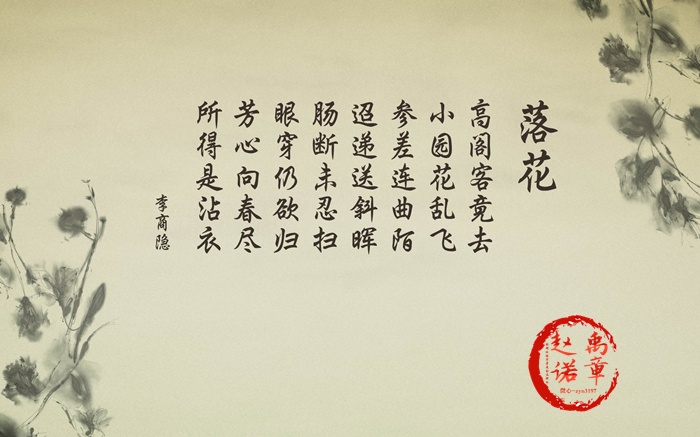 落花
高阁客竟去
小园花乱飞
参差连曲陌
迢递送斜晖
肠断未忍扫
眼穿仍欲归
芳心向春尽
所得是沾衣
李商隐
禹章
赵诺